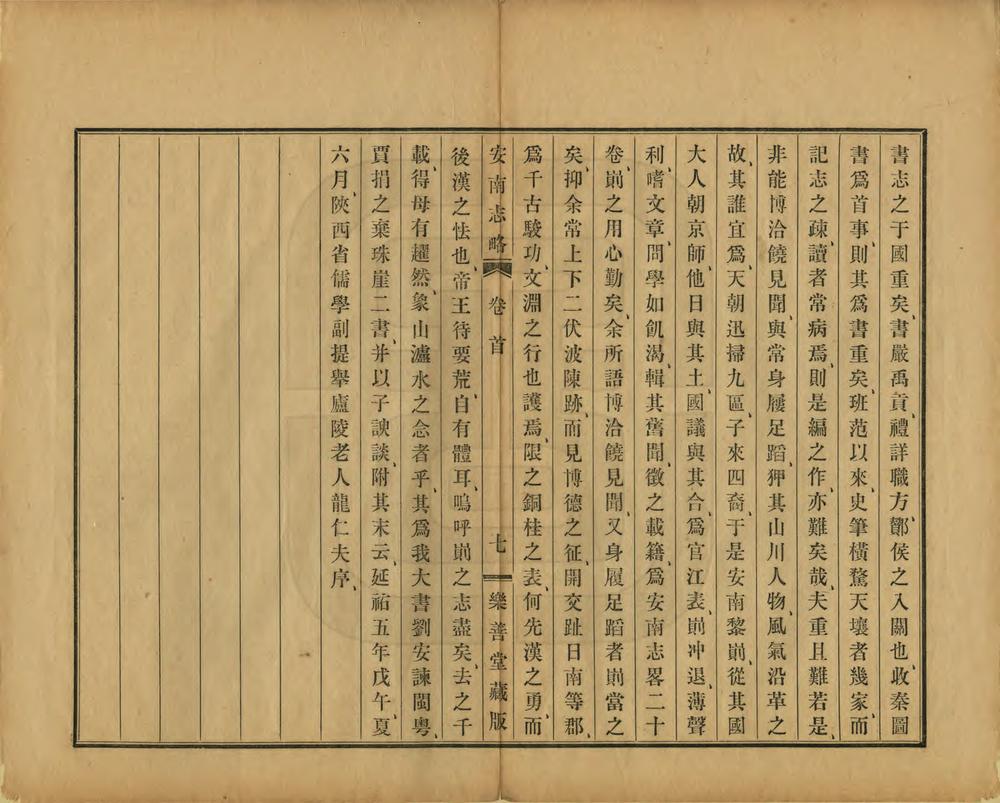 書志之于國重矣、書嚴禹貢、禮詳職方、酇侯之入關也、收秦圖
書爲首事、則其爲書重矣、班范以來、史筆橫騖天壤者幾家、而
記志之疎、讀者常病焉、則是編之作、亦難矣哉、夫重且難若是、
非能博洽饒見聞、與常身履足蹈、狎其山川人物、風氣沿革之
故、其誰宜爲、天朝迅掃九區、子來四裔、于是安南黎崱、從其國
大人朝京師、他日與其土、國議與其合、爲官江表、崱冲退、薄聲
利、嗜文章、問學如飢渴、輯其舊聞、徵之載籍、爲安南志畧二十
卷、崱之用心勤矣、余所語博洽饒見聞、又身履足蹈者崱當之
矣、抑余常上下二伏波陳跡、而見博德之征、開交趾日南等郡、
爲千古駿功、文淵之行也護焉、限之銅桂之表、何先漢之勇、而
安南志略 卷首 七 樂善堂藏版
後漢之怯也、帝王待要荒、自有體耳、嗚呼崱之志盡矣、去之千
載、得母有趯然、象山瀘水之念者乎、其爲我大書劉安諫閩粵、
賈捐之棄珠崖二書、并以子諛談、附其末云、延祐五年戊午、夏
六月、陝西省儒學副提舉廬陵老人龍仁夫序、